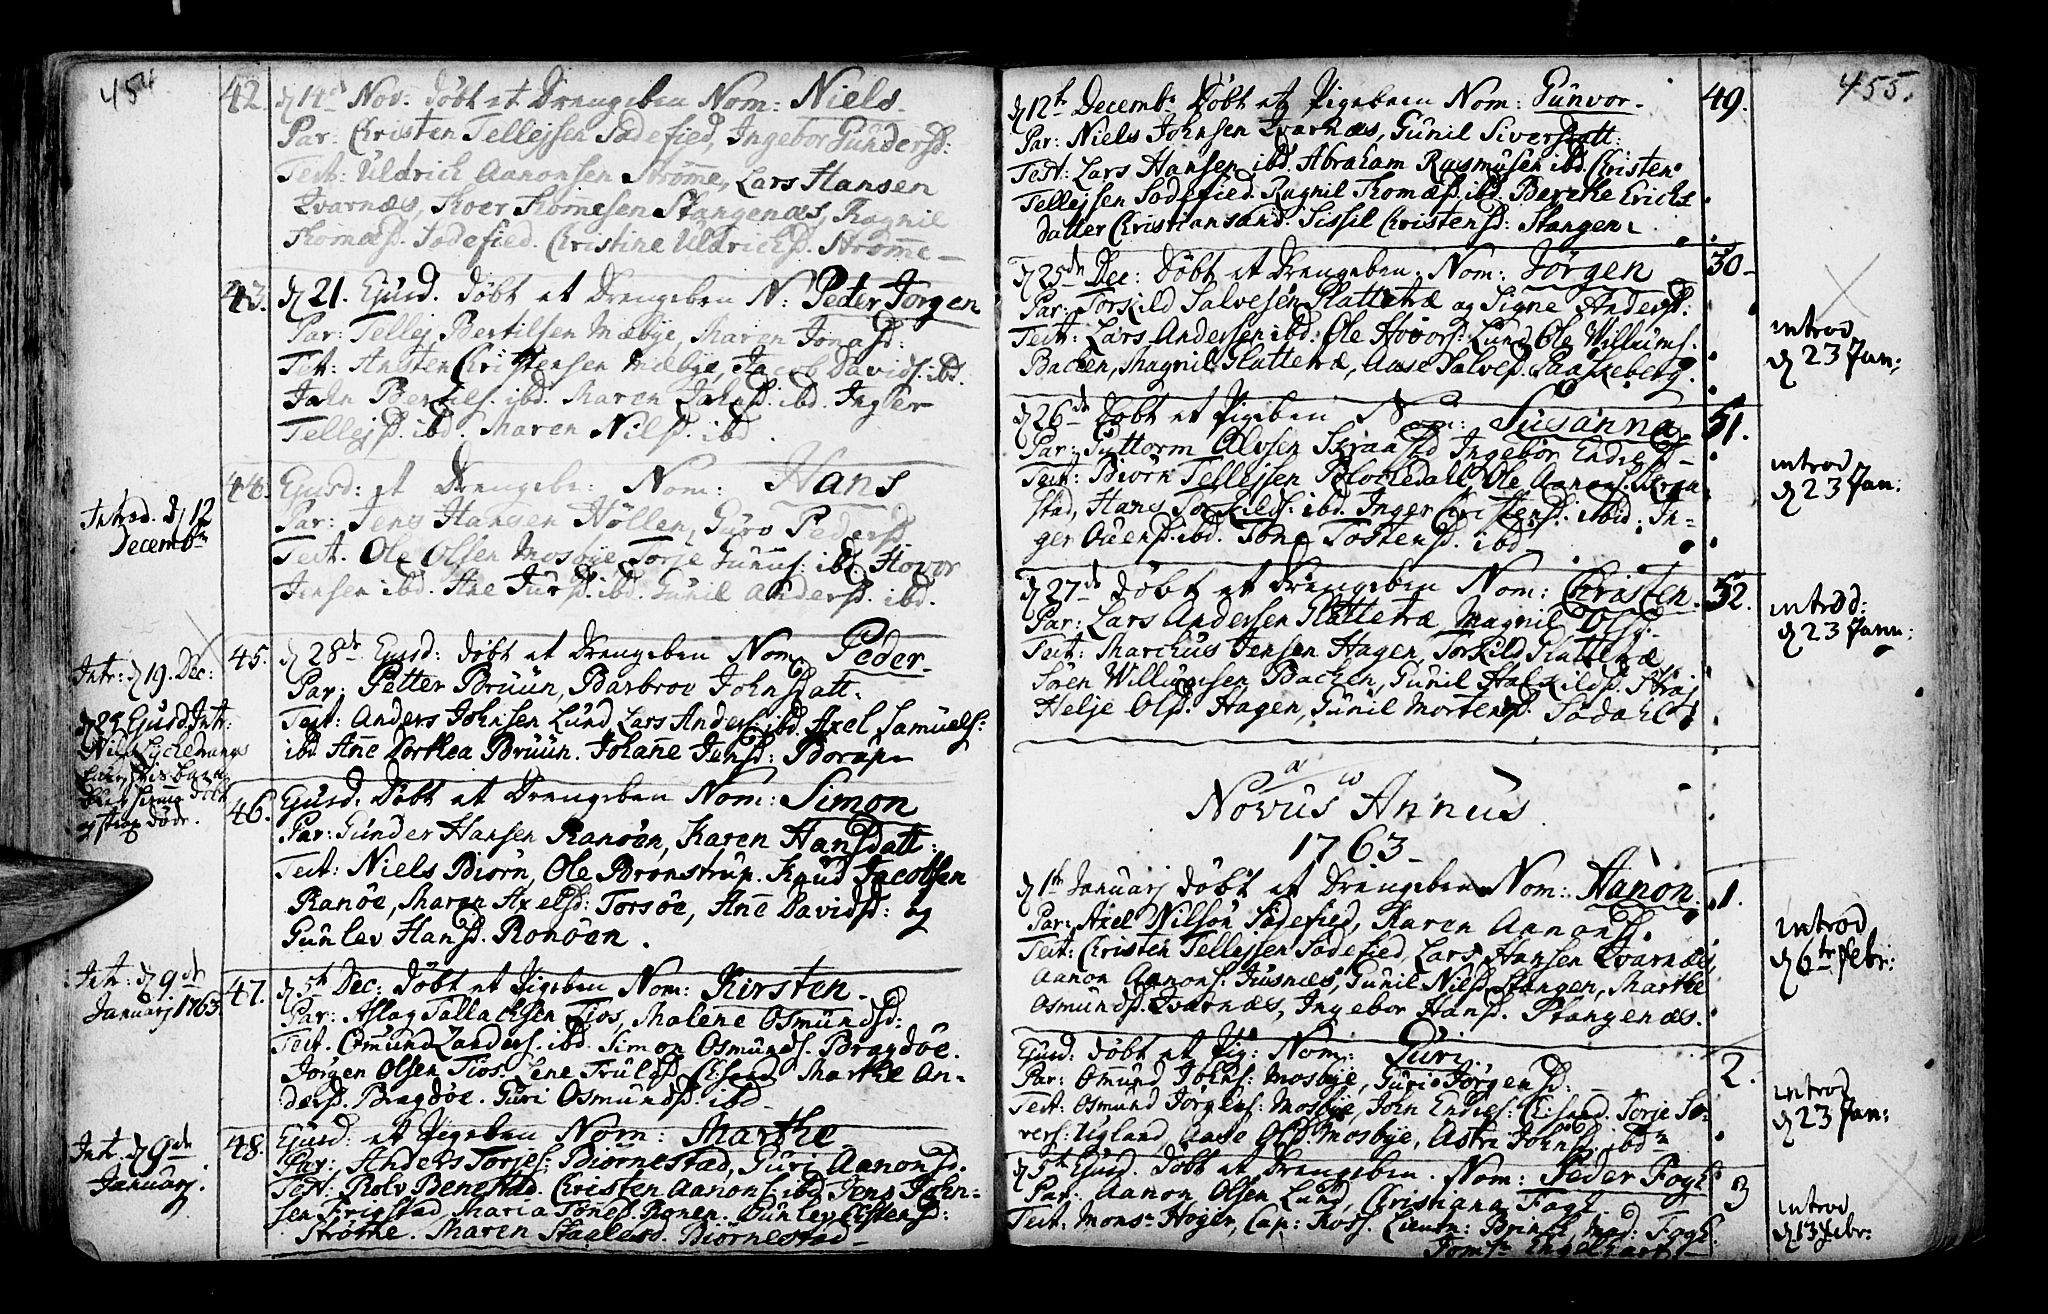 454
42. d 14d Nov: döbt et Drengebn Nom: Niels.
Par: Christen Tellejsen Sodefied, Ingebor Gundersd:
Test: Uldrich Aanonsen Strömme, Lars Hansen
Qvarnæs, Thoer Thomesen Stangenæs, Ragnil
Thomæsd. Sodefied. Christine Uldrichsd. Strömme
43. d 21. Ejusd. döbt et Drengebn N: Peder Jörgen
Par: Tellej Bertilsen Mæbye, Maren Jonasd:
Test: Ansten Christensen Mæbye, Jacob Davids. ibd.
John Bertils. ibd. Maren Johsd. ibd. Inger
Tellejsd. ibd. Maren Nilsd. ibd.
44. Ejusd: et Drengebn: Nom: Hans
Introd. d 12
Decembr
Par: Jens Hansen Höllen, Guro Pedersd
Test. Ole Olsen Mosbye Torje Gunnus: ibd. Hovor
Jensen ibd. Ane Jursd. ibd. Gunil Andersd. ibd.
45. d 28de Ejusd: döbt et Drengebn Nom. Peder
Intr: d 19. Dec:
Par: Petter Bruun, Barbroe Johnsdatt.
Test: Anders Johnsen Lund, Lars Anders: ibd. Axel Samuels:
ibd. Ane Dorthea Bruun. Johane Jensd: Borup
d 29 Ejusd. Intr:
hans barn
döbt
og strax döde.
46. Ejusd. Döbt et Drengebn Nom: Simon
Par: Gunder Hansen Ranöen, Karen Hansdatt:
Test: Niels Biörn, Ole Brönstrup. Knud Jacobsen
Ranöe, Maren Axelsd: Torsöe, Ane Davidsd: og
Gunlev Hansd. Ronöen.
47. d 5th Dec: Döbt et Pigebn Nom: Kirsten.
Intr: d 9de
Januarj 1763
Par: Aslag Tallachsen Tios, Malene Osmundsd:
Test. Osmund Zanders. ibd. Simon Osmunds. Bragdöe.
Jörgen Olsen Tios. Ene Trulsd. Chrsand. Marthe An=
dersd. Bragdöe. Guri Osmundsd. ibd
48. Ejusd: et Pigebn Nom: Marthe
Int. d 9de
Januarj.
Par: Anders Torjes: Biörnestad, Guri Aanonsd.
Test: Rolv Benestad. Christen Aanons. ibd. Jens John=
sen Frigstad Maria Tönesd. Ronen. Gunlev Estensd:
Strömme. Maren Staalesd. Biörnestad
455.
49. d 12te Decembr Döbt et Pigebn Nom: Gunvor.
Par: Niels Johnsen Qvarnæs, Gunil Siversdatt:
Test: Lars Hansen ibd. Abraham Rasmusen ibd. Christen
Tellejsen Sodefied. Ragnil Thomæsd. ibd. Berthe Erichs
datter Christiansand. Sissil Christensd: Stangen
50. d 25de Dec: Döbt et Drengebn. Nom: Jörgen
Par: Torkild Salvesen Slattetræ og Signe Andersd:
Test: Lars Andersen ibd: Ole Hovors: Lund, Ole Willums.
Backen, Magnil Slattetræ, Aase Salvesd. Raaskeberg.
introd
d 23 Jan:
51. d 26de Döbt et Pigebn Nom: Susanna
Par: Guttorm Olvsen Skraastad Ingebor Endresd
Test: Biörn Tellejsen Ole Aanons.
stad, Hans Torkilds. ibd. Inger Christensd. ibid. In=
ger Ouensd. ibd. Tone Tostensd. ibd
introd
d 23 Jan:
52. d 27de Döbt et Drengebn Nom: Christen.
Par: Lars Andersen Slattetræ Magnil Olsd.
Test: Marchus Jensen Hagen, Torkild Slattetræ
Sören Willumsen Backen, Gunil Halkildsd. Straj
Helje Olsd. Hagen, Gunil Mortensd. Sodahl
introd:
d 23 Janu:
Novus Annus
1763
1. d 1te Januarj döbt et Drengebn Nom: Aanon.
Par: Axel Nilson Sodefied, Karen Aanonsd.
Test: Christen Tellejsen Sodefied, Lars Hansen Qvarnæs,
Aanon Aanons: Tusnæs, Gunil Nilsd. Stangen, Marthe
Osmundsd. Qvarnæs, Ingebor Hansd. Stangenæs.
introd
d 6te Febr:
2. Ejusd: Döbt et Pig: Nom: Guri.
Par: Omund Johns: Mosbye, Guri Jörgensd:
Test: Osmund Jörgens: Mosbye, John Endres: Chrsand. Torje So=
vers: Ugland, Aase Olsd. Mosbye, Astri Johnsd. ibdm
introd
d 23 Jan:
3 d 5th Ejusd. Döbt et Drengebn. Nom: Peder Fogh
Par: Aanon Olsen Lund, Christiana Fogh.
Test: Monsr Höyer, Cap: Ross. Lieutn: Brinck, Mad: Fogh.
Jomfr Engelhart
introd
d 13 Febr: